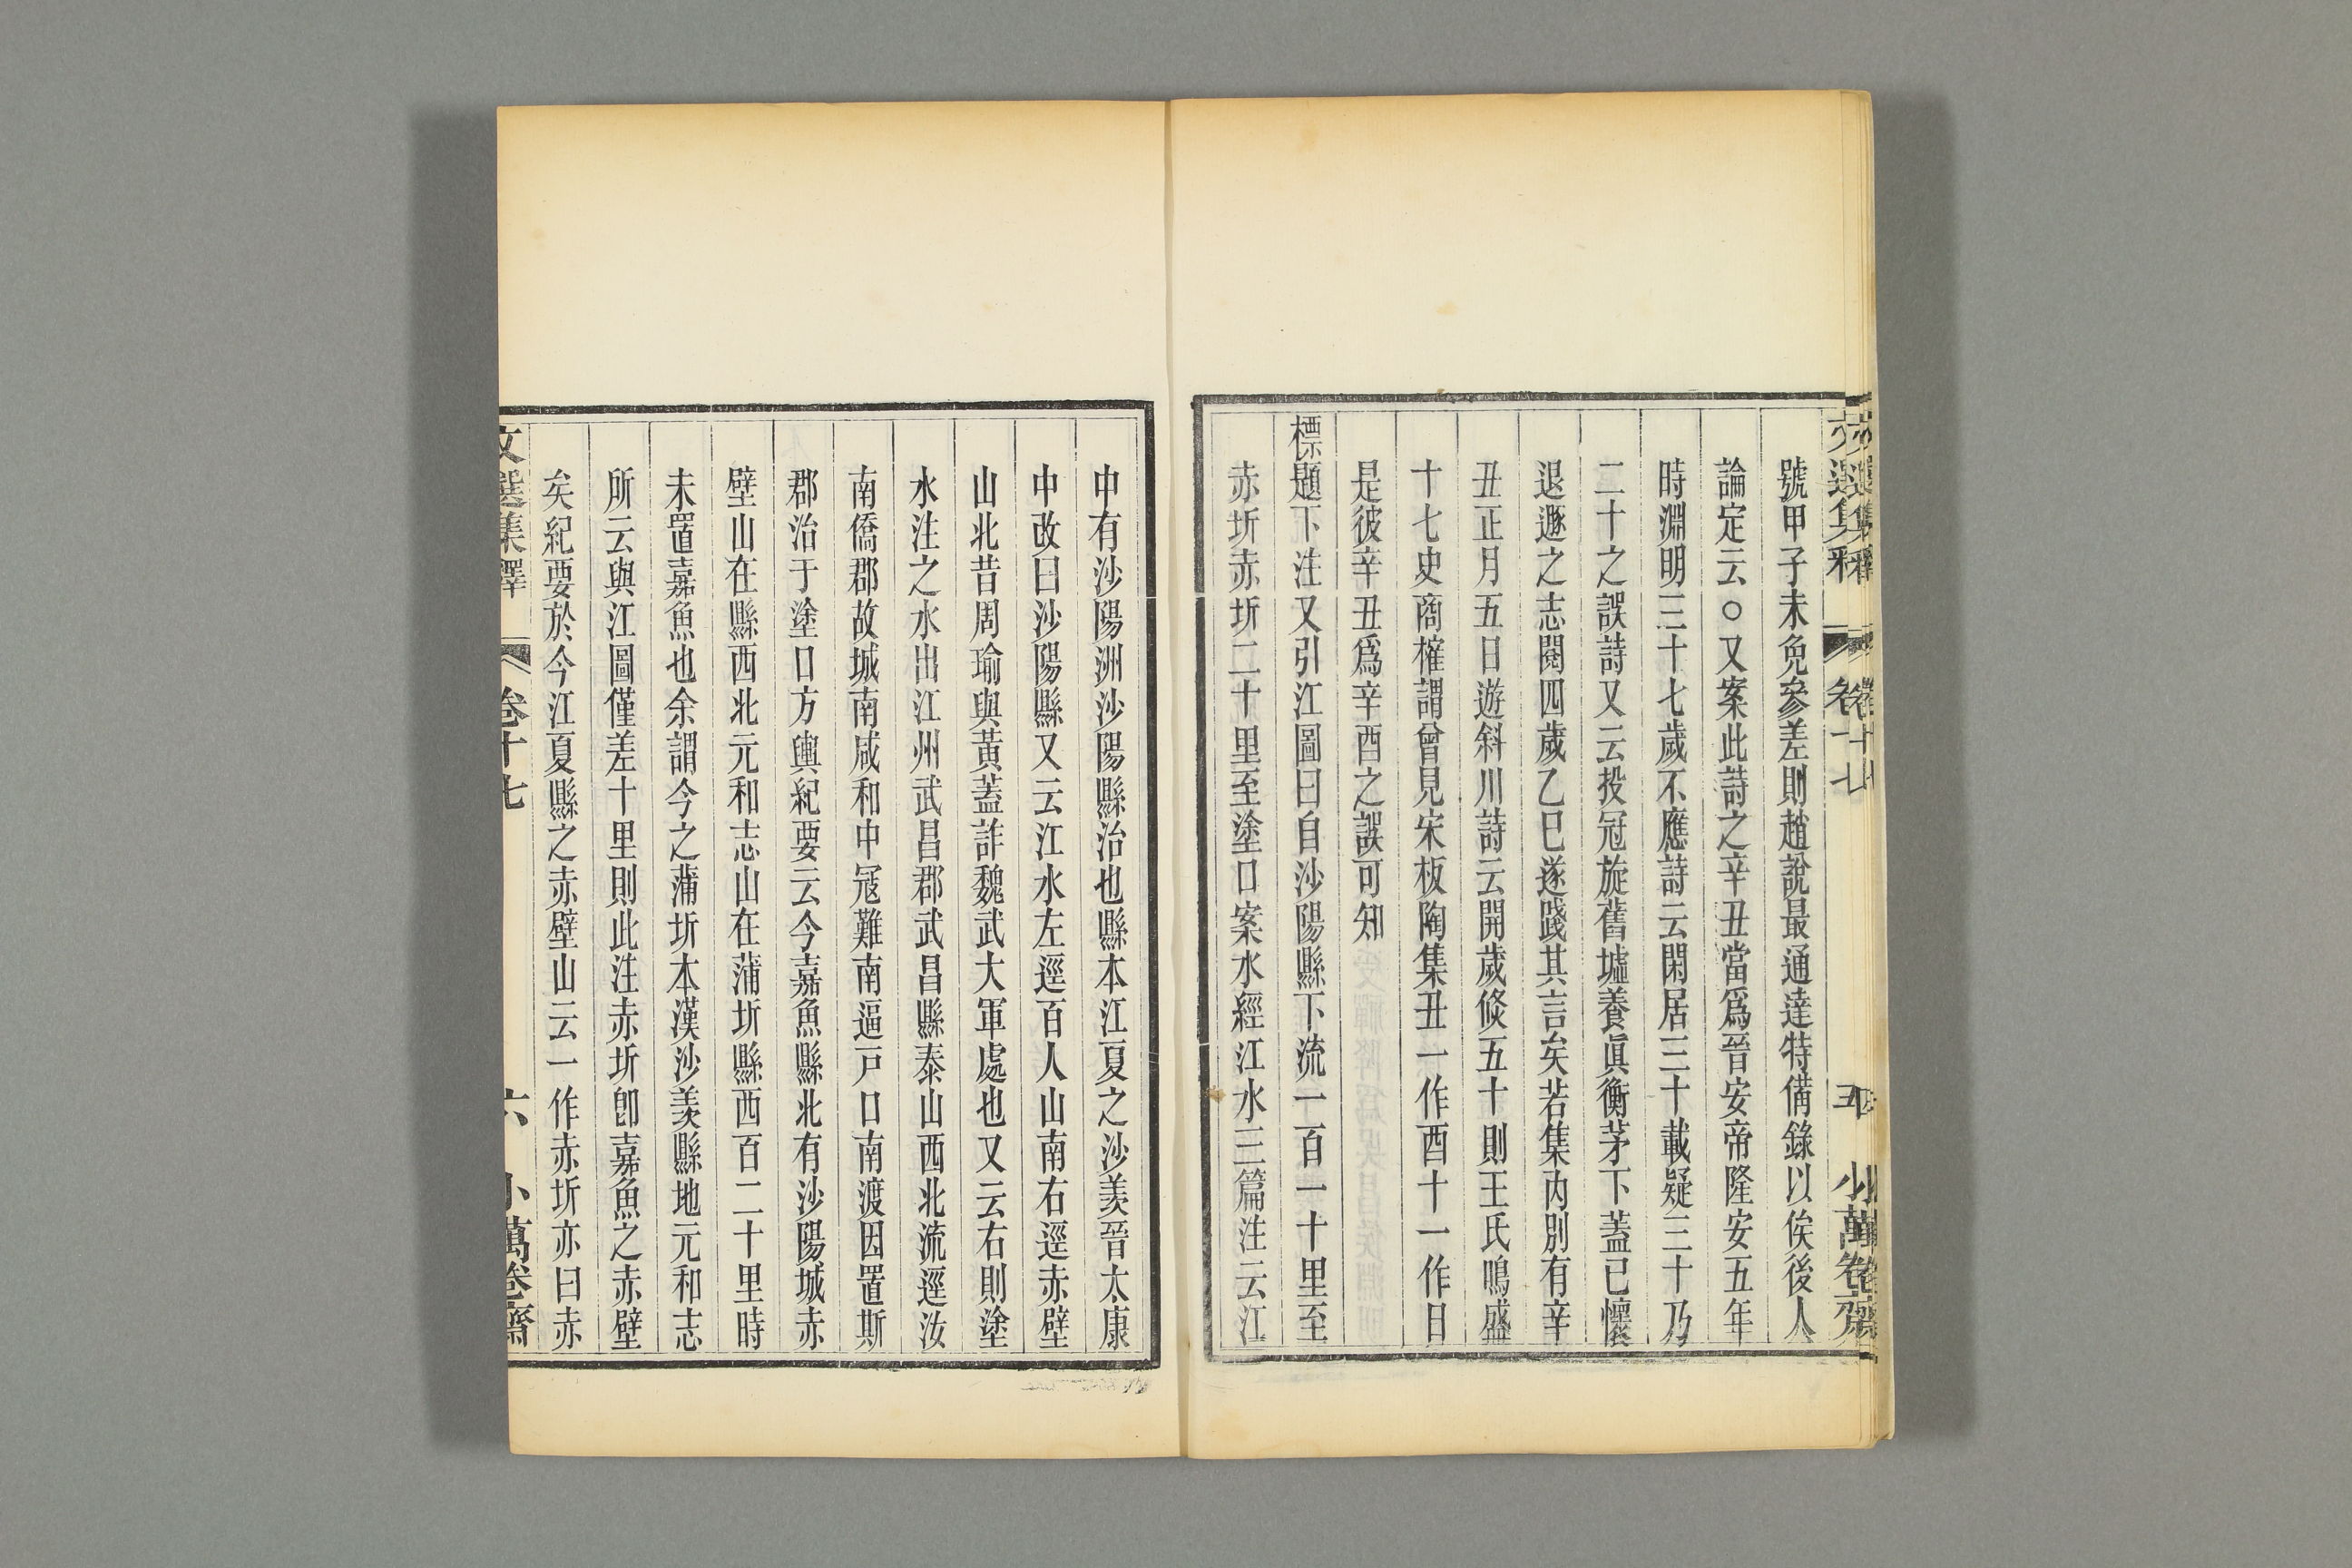 文選集釋 卷十七 五 小萬卷齋
號甲子未免參差則趙說最通達特備錄以俟後人
論定云○又案此詩之辛丑當爲晉安帝隆安五年
時淵明三十七歲不應詩云閑居三十載疑三十乃
二十之誤詩又云投冠旋舊墟養眞衡茅下蓋已懷
退遯之志閱四歲乙巳遂踐其言矣若集內別有辛
丑正月五日遊斜川詩云開歲倐五十則王氏鳴盛
十七史商榷謂曾見宋板陶集丑一作酉十一作日
是彼辛丑爲辛酉之誤可知
標題下注又引江圖曰自沙陽縣下流一百一十里至
赤圻赤圻二十里至塗口案水經江水三篇注云江
中有沙陽洲沙陽縣治也縣本江夏之沙羨晉太康
中改曰沙陽縣又云江水左逕百人山南右逕赤壁
山北昔周瑜與黃蓋詐魏武大軍處也又云右則塗
水注之水出江州武昌郡武昌縣泰山西北流逕汝
南僑郡故城南咸和中寇難南逼戸口南渡因置斯
郡治于塗口方輿紀要云今嘉魚縣北有沙陽城赤
壁山在縣西北元和志山在蒲圻縣西百二十里時
未置嘉魚也余謂今之蒲圻本漢沙羨縣地元和志
所云與江圖僅差十里則此注赤圻卽嘉魚之赤壁
矣紀要於今江夏縣之赤壁山云一作赤圻亦曰赤
文選集釋 卷十七 六 小萬卷齋